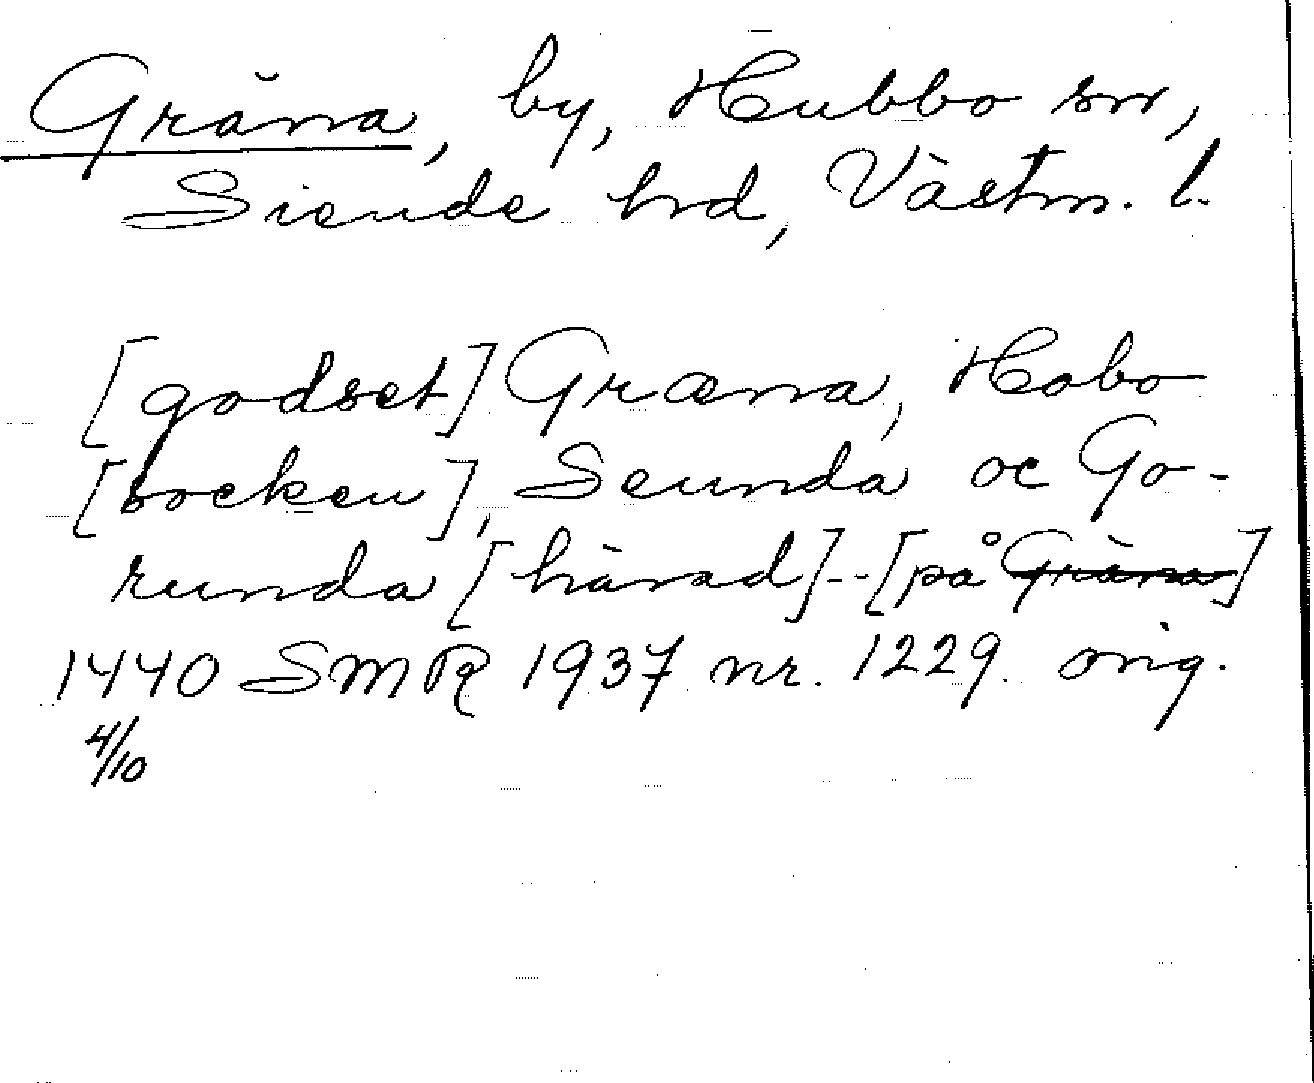 Gräna, by, Hubbo sn,
Siende hrd, Västm. l.
[godset] Græna, Hobo
[socken], Seunda oc Go-
runda [härad]-- [på Gräna]
1440 SMR 1937 nr. 1229. orig.
4/10